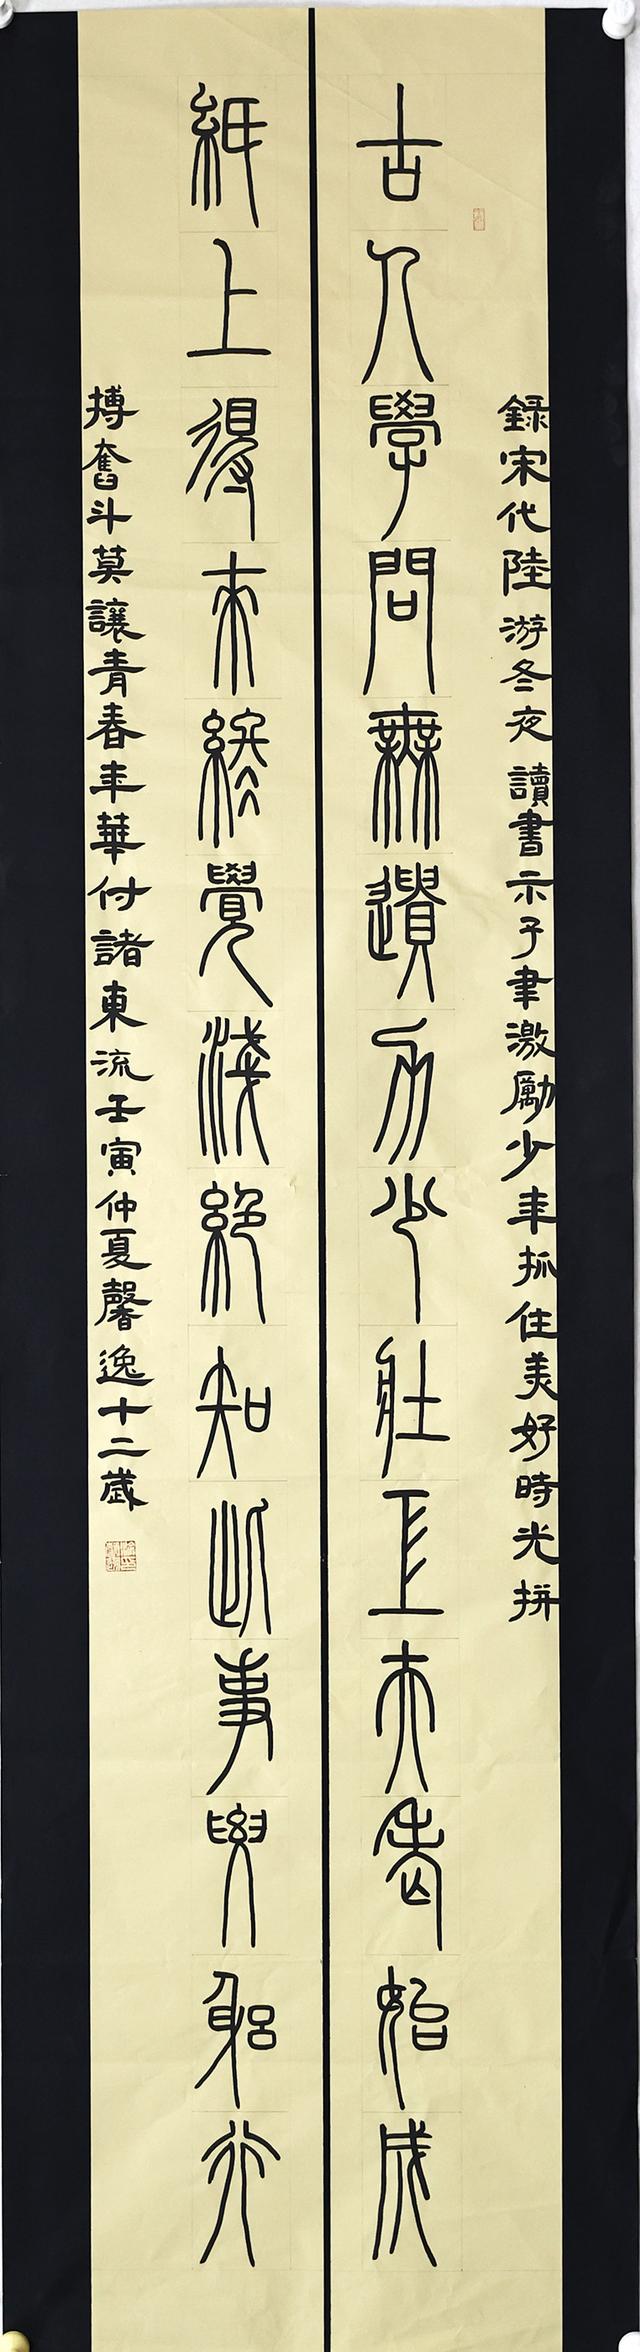 錄宋代陸游冬夜讀書示子聿激勵少年抓住美好時光拼
古人學問無遺力少壯工夫老始成
紙上得來終覺淺絕知此事要躬行
搏奮斗莫讓青春年華付諸東流壬寅仲夏馨逸十二歲